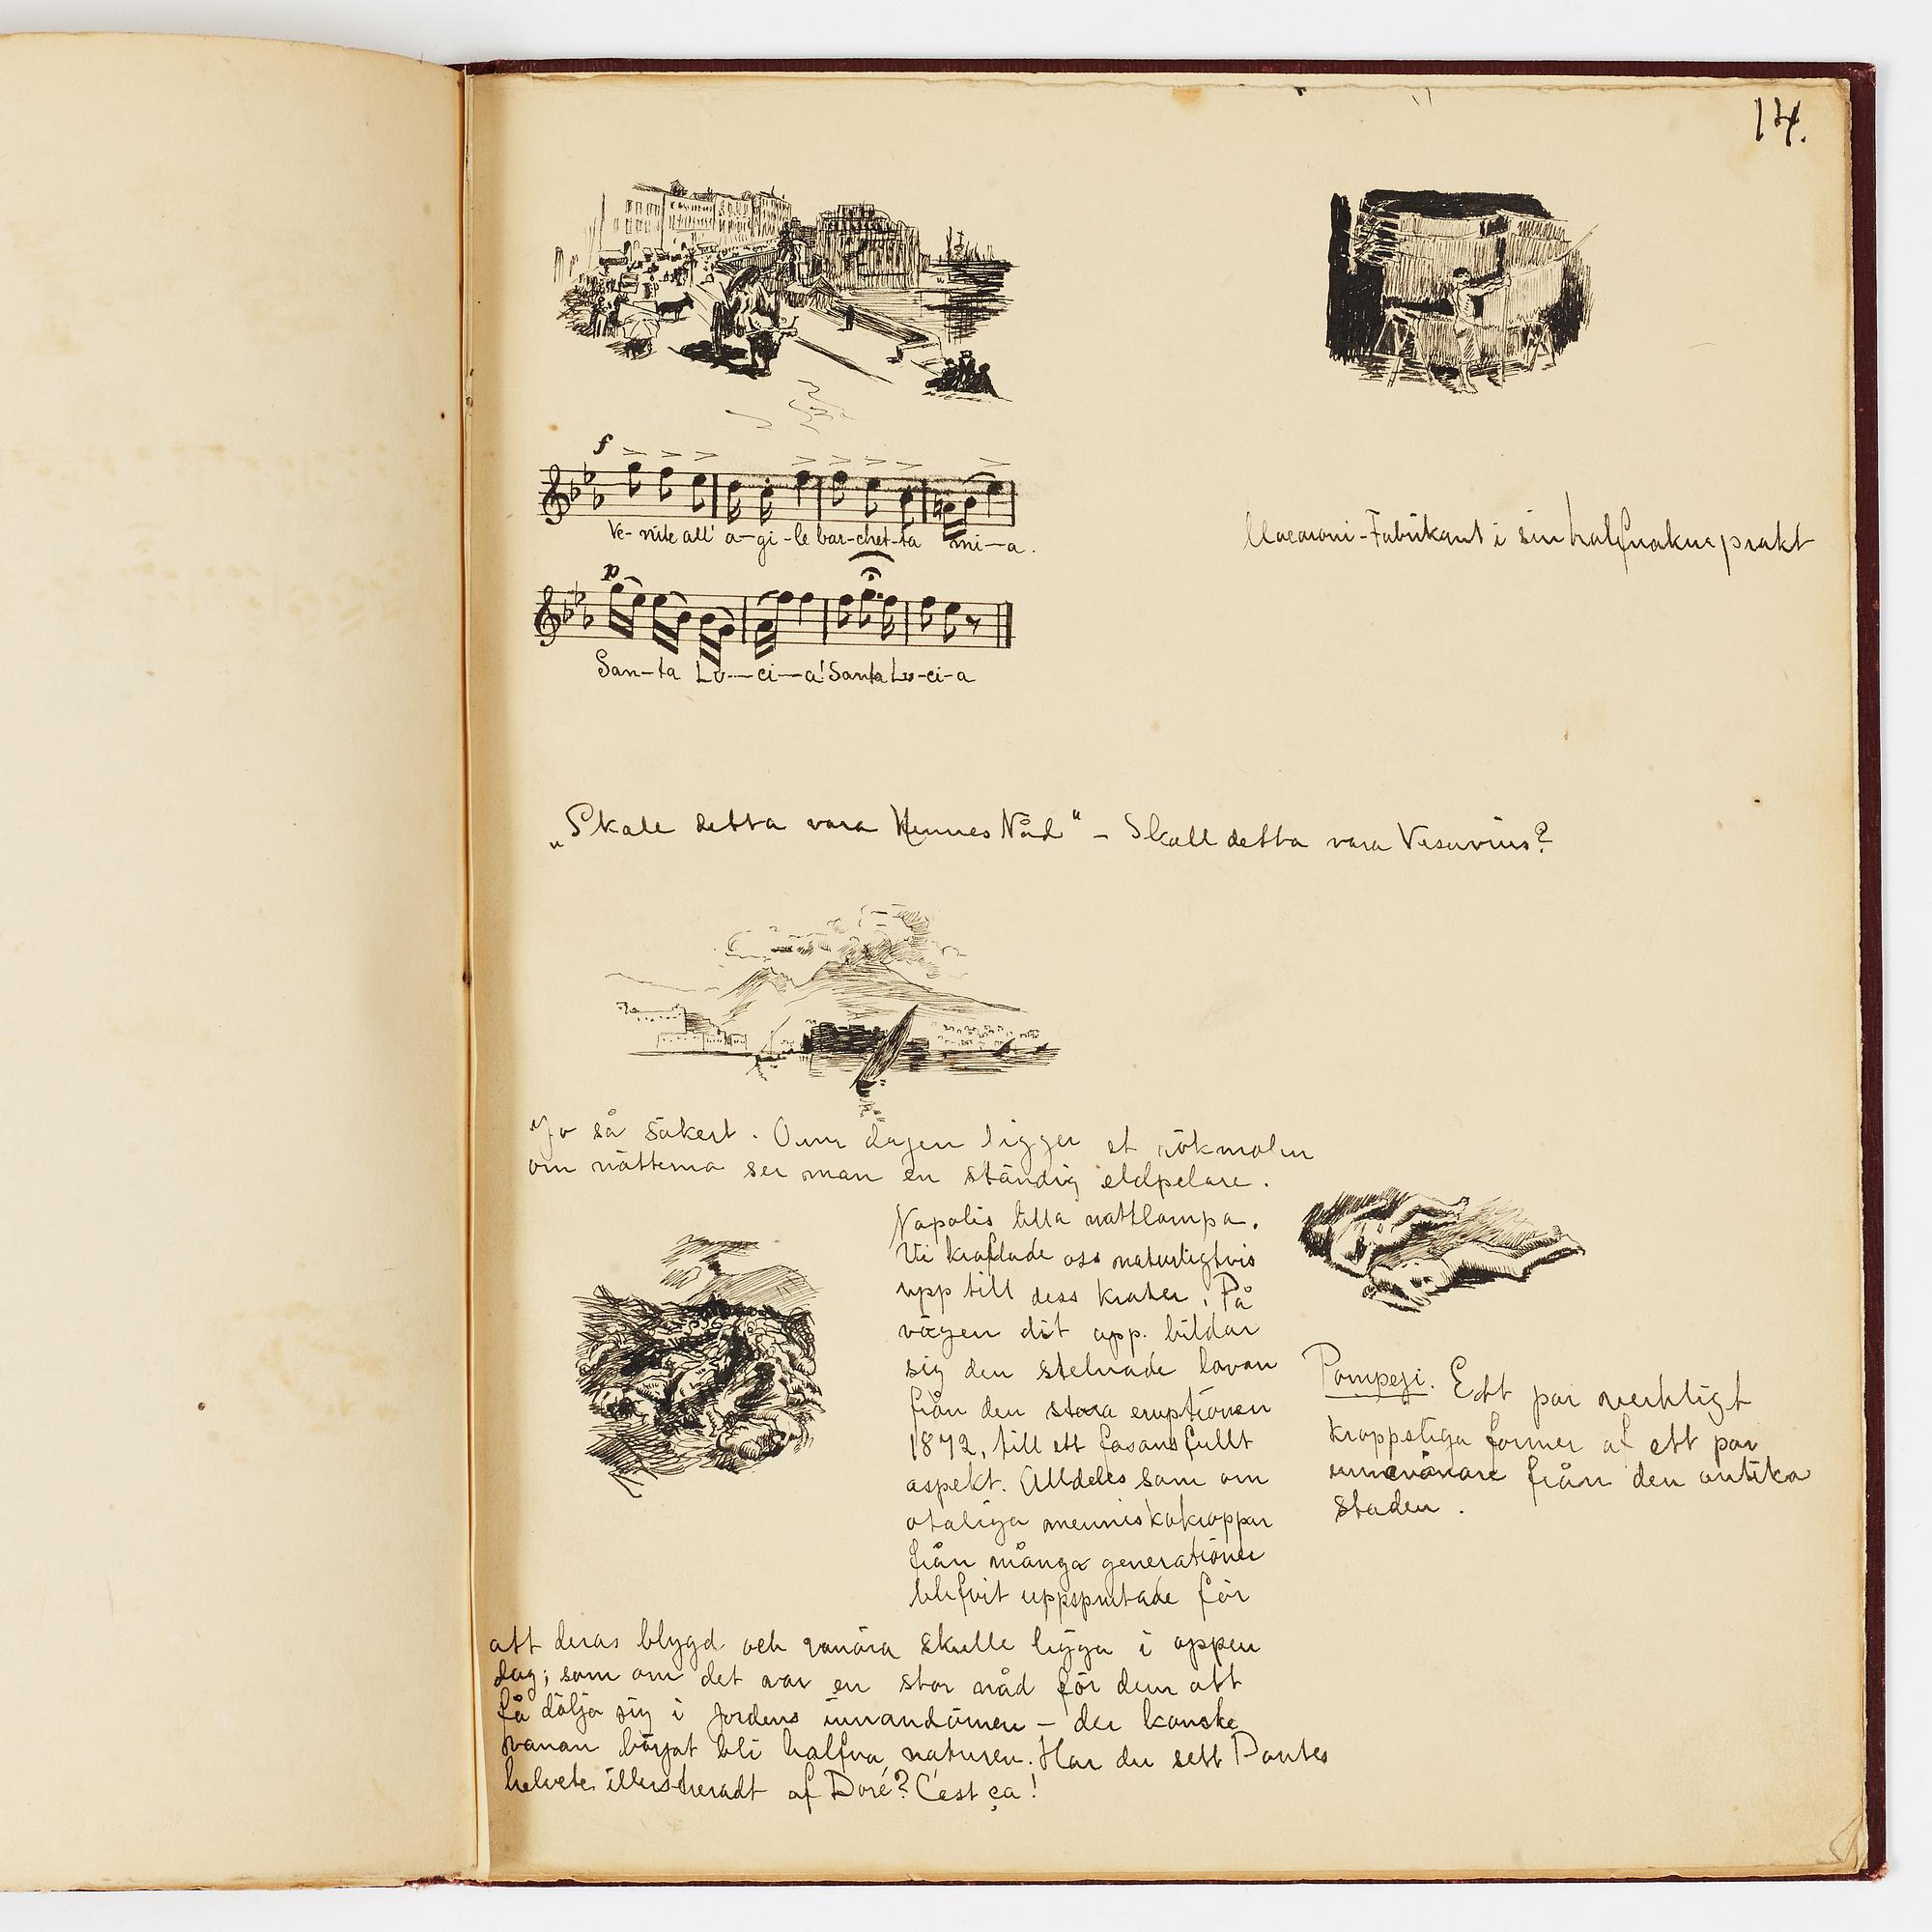 14.
f
Ve- nite all' a-gi-le bar-chet-ta mi-a.
p
San-ta Lu-ci-a! Santa Lu-ci-a
Macaroni-Fabrikant i sin halfnakna prakt
„Skall detta vara Hennes Nåd" - Skall detta vara Vesuvius?
Jo så säkert. Om dagen ligger et rökmoln
om nätterna ser man en ständig eldpelare.
Napolis lilla nattlampa.
Vi kraflade oss naturligtvis
upp till dess krater. På
vägen dit upp. bildar
sig den stelnade lavan
från den stora eruptionen
1872, till ett fasansfullt
aspekt. Alldeles som om
otaliga menniskokroppar
från många generationer
blifvit uppsputade för
att deras blygd och vanära skulle ligga i öppen
dag; som om det var en stor nåd för dem att
få dölja sig i Jordens innandömen - der kanske
vanan börjat bli halfva naturen. Har du sett Dantes
helvete illustreradt af Doré? C'est ça!
Pompeji. Ett par verkligt
kroppsliga former af ett par
innevånare från den antika
staden.